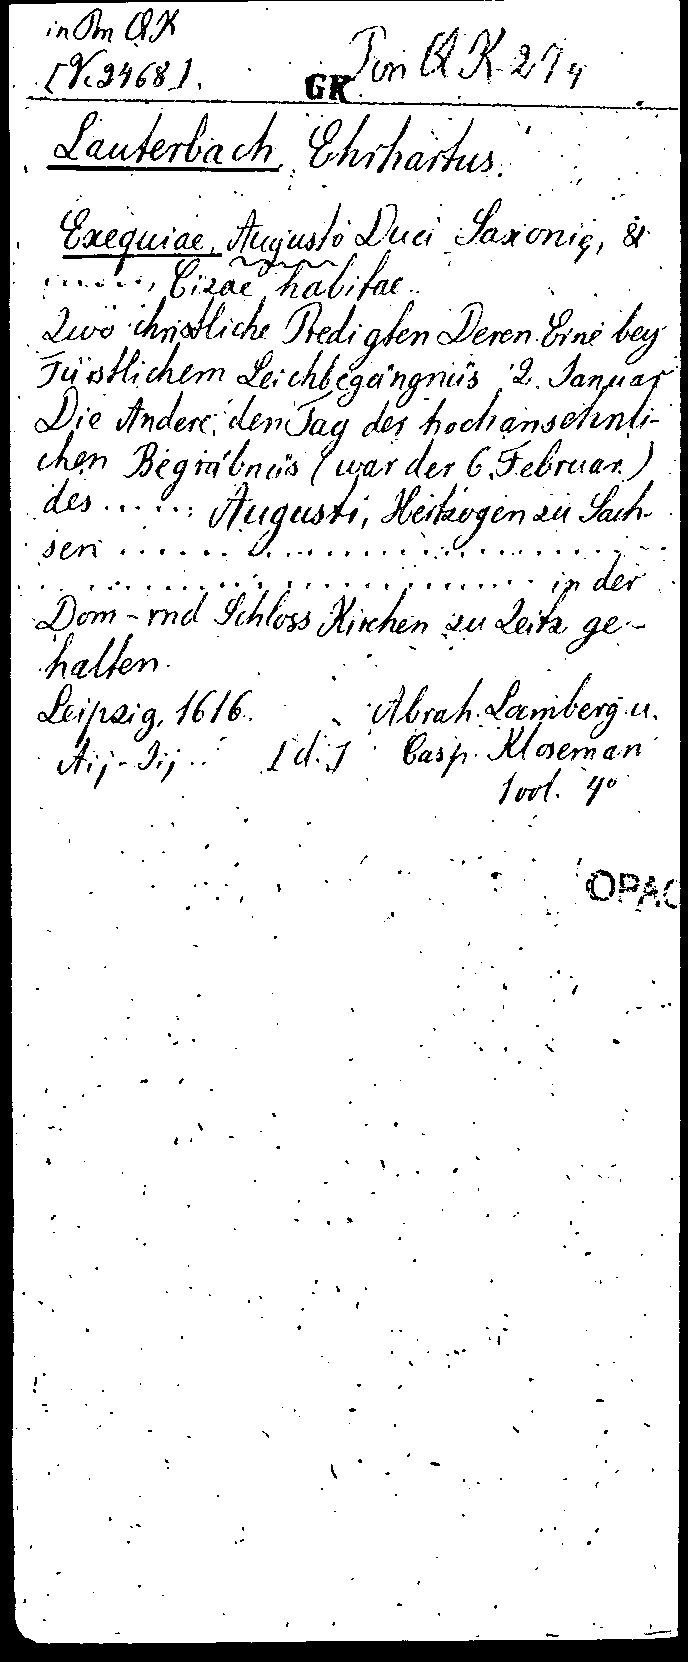 in Pon QK
[V. 2468].
Pon QK 274
GK
Lauterbach, Ehrhartus.
Exequiae, Augusto Duci Saxonię, &
....., Cizae habitae.
Zwo christliche Predigten Deren Eine bey
Fürstlichem Leichbegängnüs 2. Januar
Die Andere, den Tag der hochansehnli-
chen Begräbnüs (war der 6. Februar.)
des ...... Augusti, Hertzogen zu Sach-
sen ................................
................................ in der
Dom- vnd Schloss Kirchen zu Zeitz ge-
halten.
Leipzig, 1616. Abrah. Lamberg u.
Aij-Jij. [d.] Casp. Kloseman
1 vol. 4°
OPAC